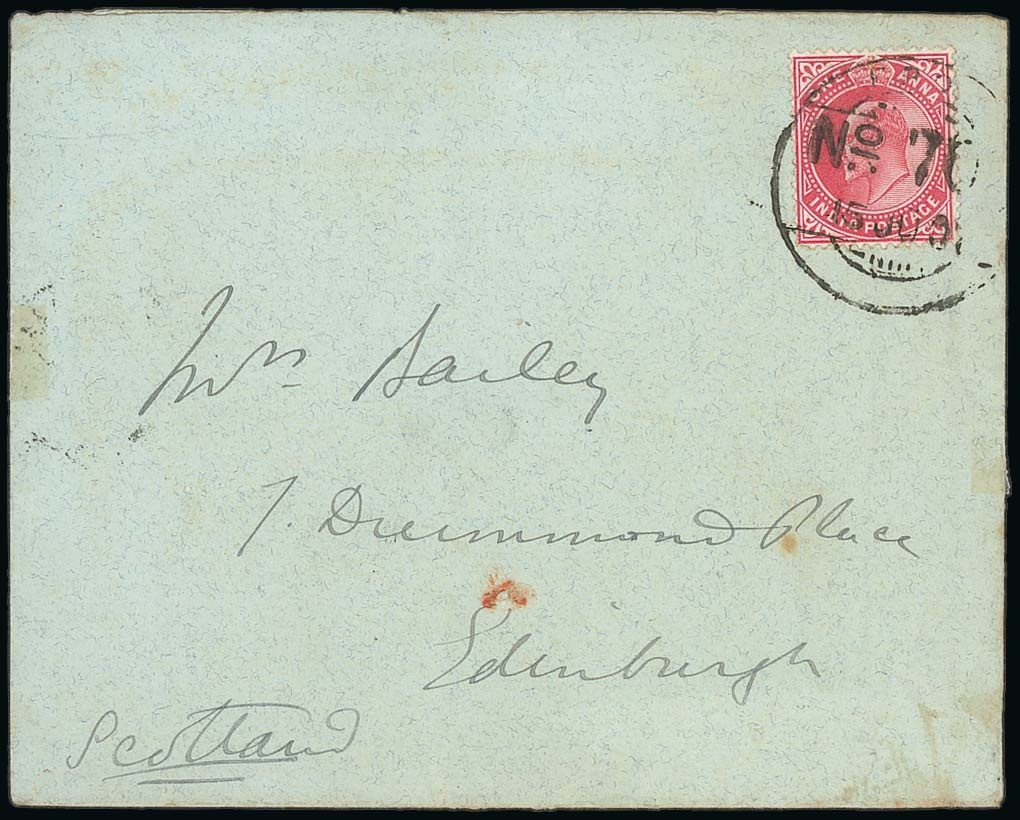 ONE ANNA
INDIA POSTAGE
Mrs Bailey
7. Drummond Place
Edinburgh
Scotland